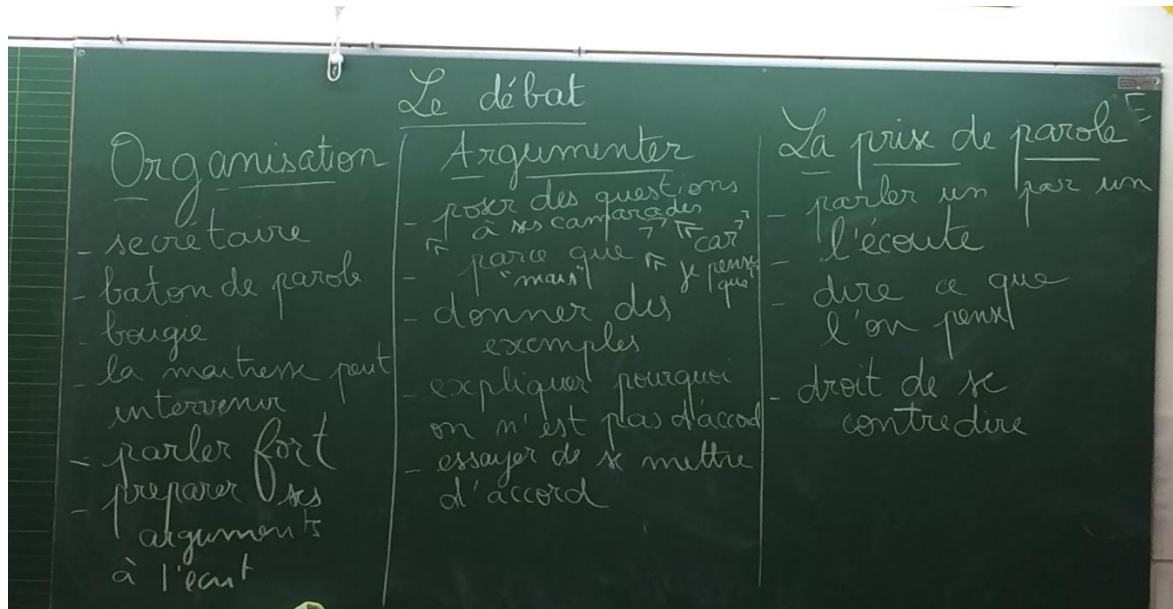 Le débat
Organisation
- secrétaire
- baton de parole
- bougie
- la maitresse peut
intervenir
- parler fort
- préparer ses
arguments
à l'écrit
Argumenter
- poser des questions
à ses camarades
- << parce que >> << car >>
"mais" << je pense que >>
- donner des
exemples
- expliquer pourquoi
on n'est pas d'accord
- essayer de se mettre
d'accord
La prise de parole
- parler un par un
- l'écoute
- dire ce que
l'on pense
- droit de se
contredire